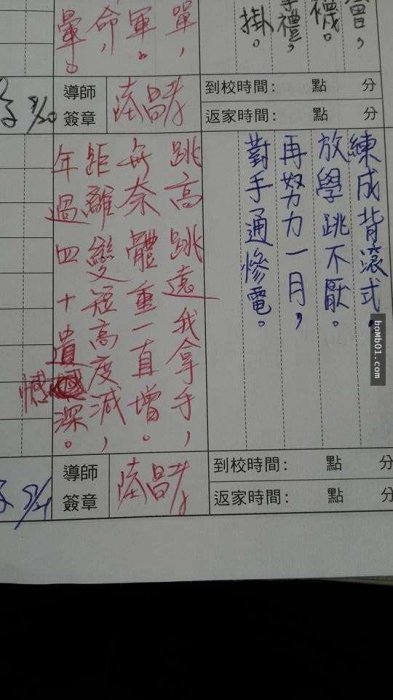 襪。
禮,
掛。
單,
軍。
命,
暈。
9/20
導師
簽章
到校時間: 點 分
返家時間: 點 分
練成背滾式,
放學跳不厭。
再努力一月,
對手通慘電。
跳高跳遠我拿手,
無奈體重一直增。
距離變短高度減,
年過四十遺憾深。
9/21
導師
簽章
到校時間: 點 分
返家時間: 點 分
boMb01.com